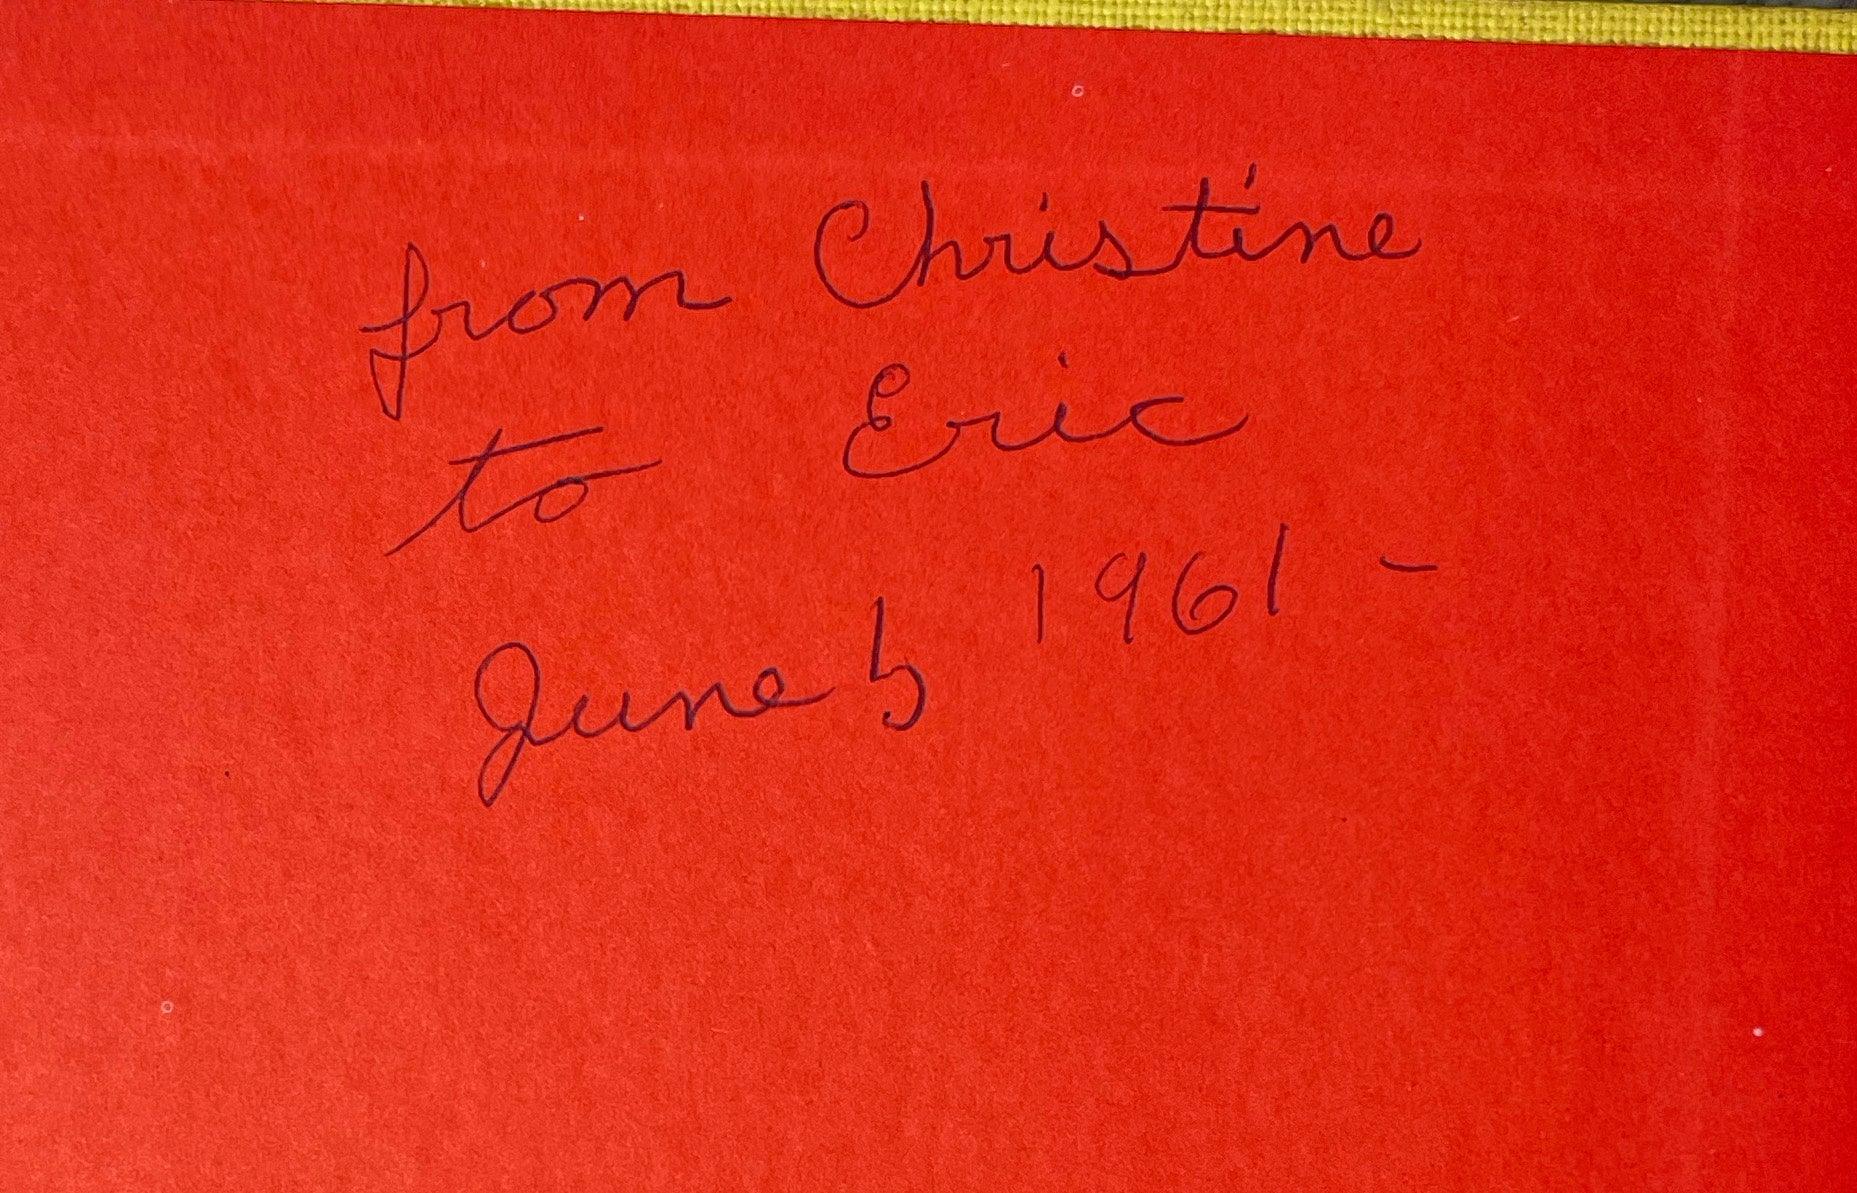 from Christine
to Eric
June 5 1961 -